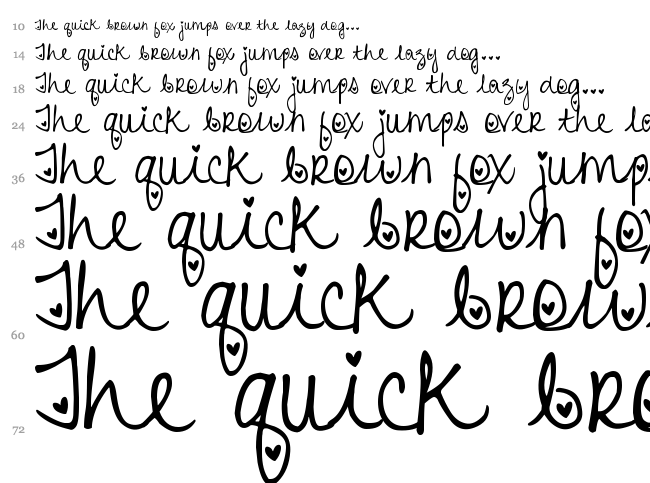 10 The quick brown fox jumps over the lazy dog...
14 The quick brown fox jumps over the lazy dog...
18 The quick brown fox jumps over the lazy dog...
24 The quick brown fox jumps over the la
36 The quick brown fox jump
48 The quick brown fo
60 The quick brow
72 The quick bro